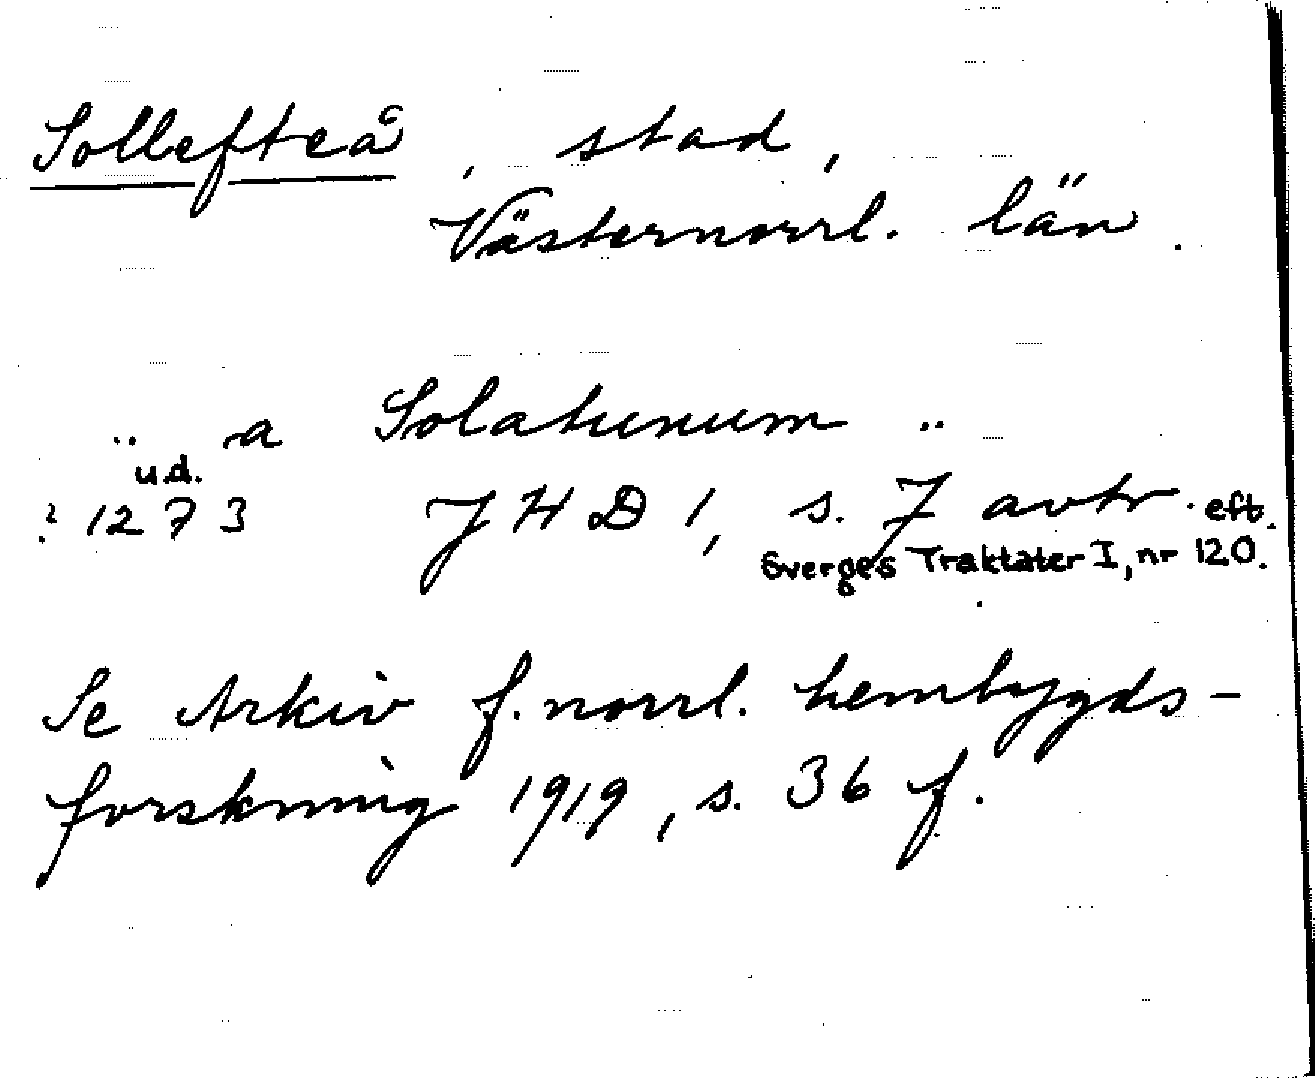 Sollefteå, stad,
Västernorrl. län.
" a Solatunum "
u.d.
? 1273 JHD 1, s. 7 avtr. eft.
Sverges Traktater I, nr 120.
Se Arkiv f. norrl. hembygds-
forskning 1919, s. 36 f.